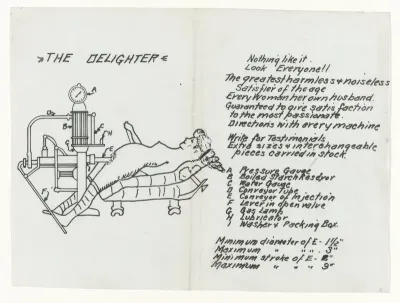 "THE DELIGHTER"
A
B
C
D
E
F
G
H
I
Nothing like it.
Look Everyone!!
The greatest harmless & noiseless
Satisfier of the age
Every Woman her own husband.
Guaranteed to give satisfaction
to the most passionate.
Directions with every machine
Write for Testimonials
Extra sizes & interchangeable
pieces carried in stock.
A Pressure Gauge
B Boiled Starch Reservor
C Water Gauge
D Conveyor Tube
E Conveyer of Injection
F Lever in open valve
G Gas Lamp
H Lubricator
I Washer & Packing Box.
Minimum diameter of E - 1½"
Maximum " " " 3"
Minimum stroke of E -
Maximum " " " 9"